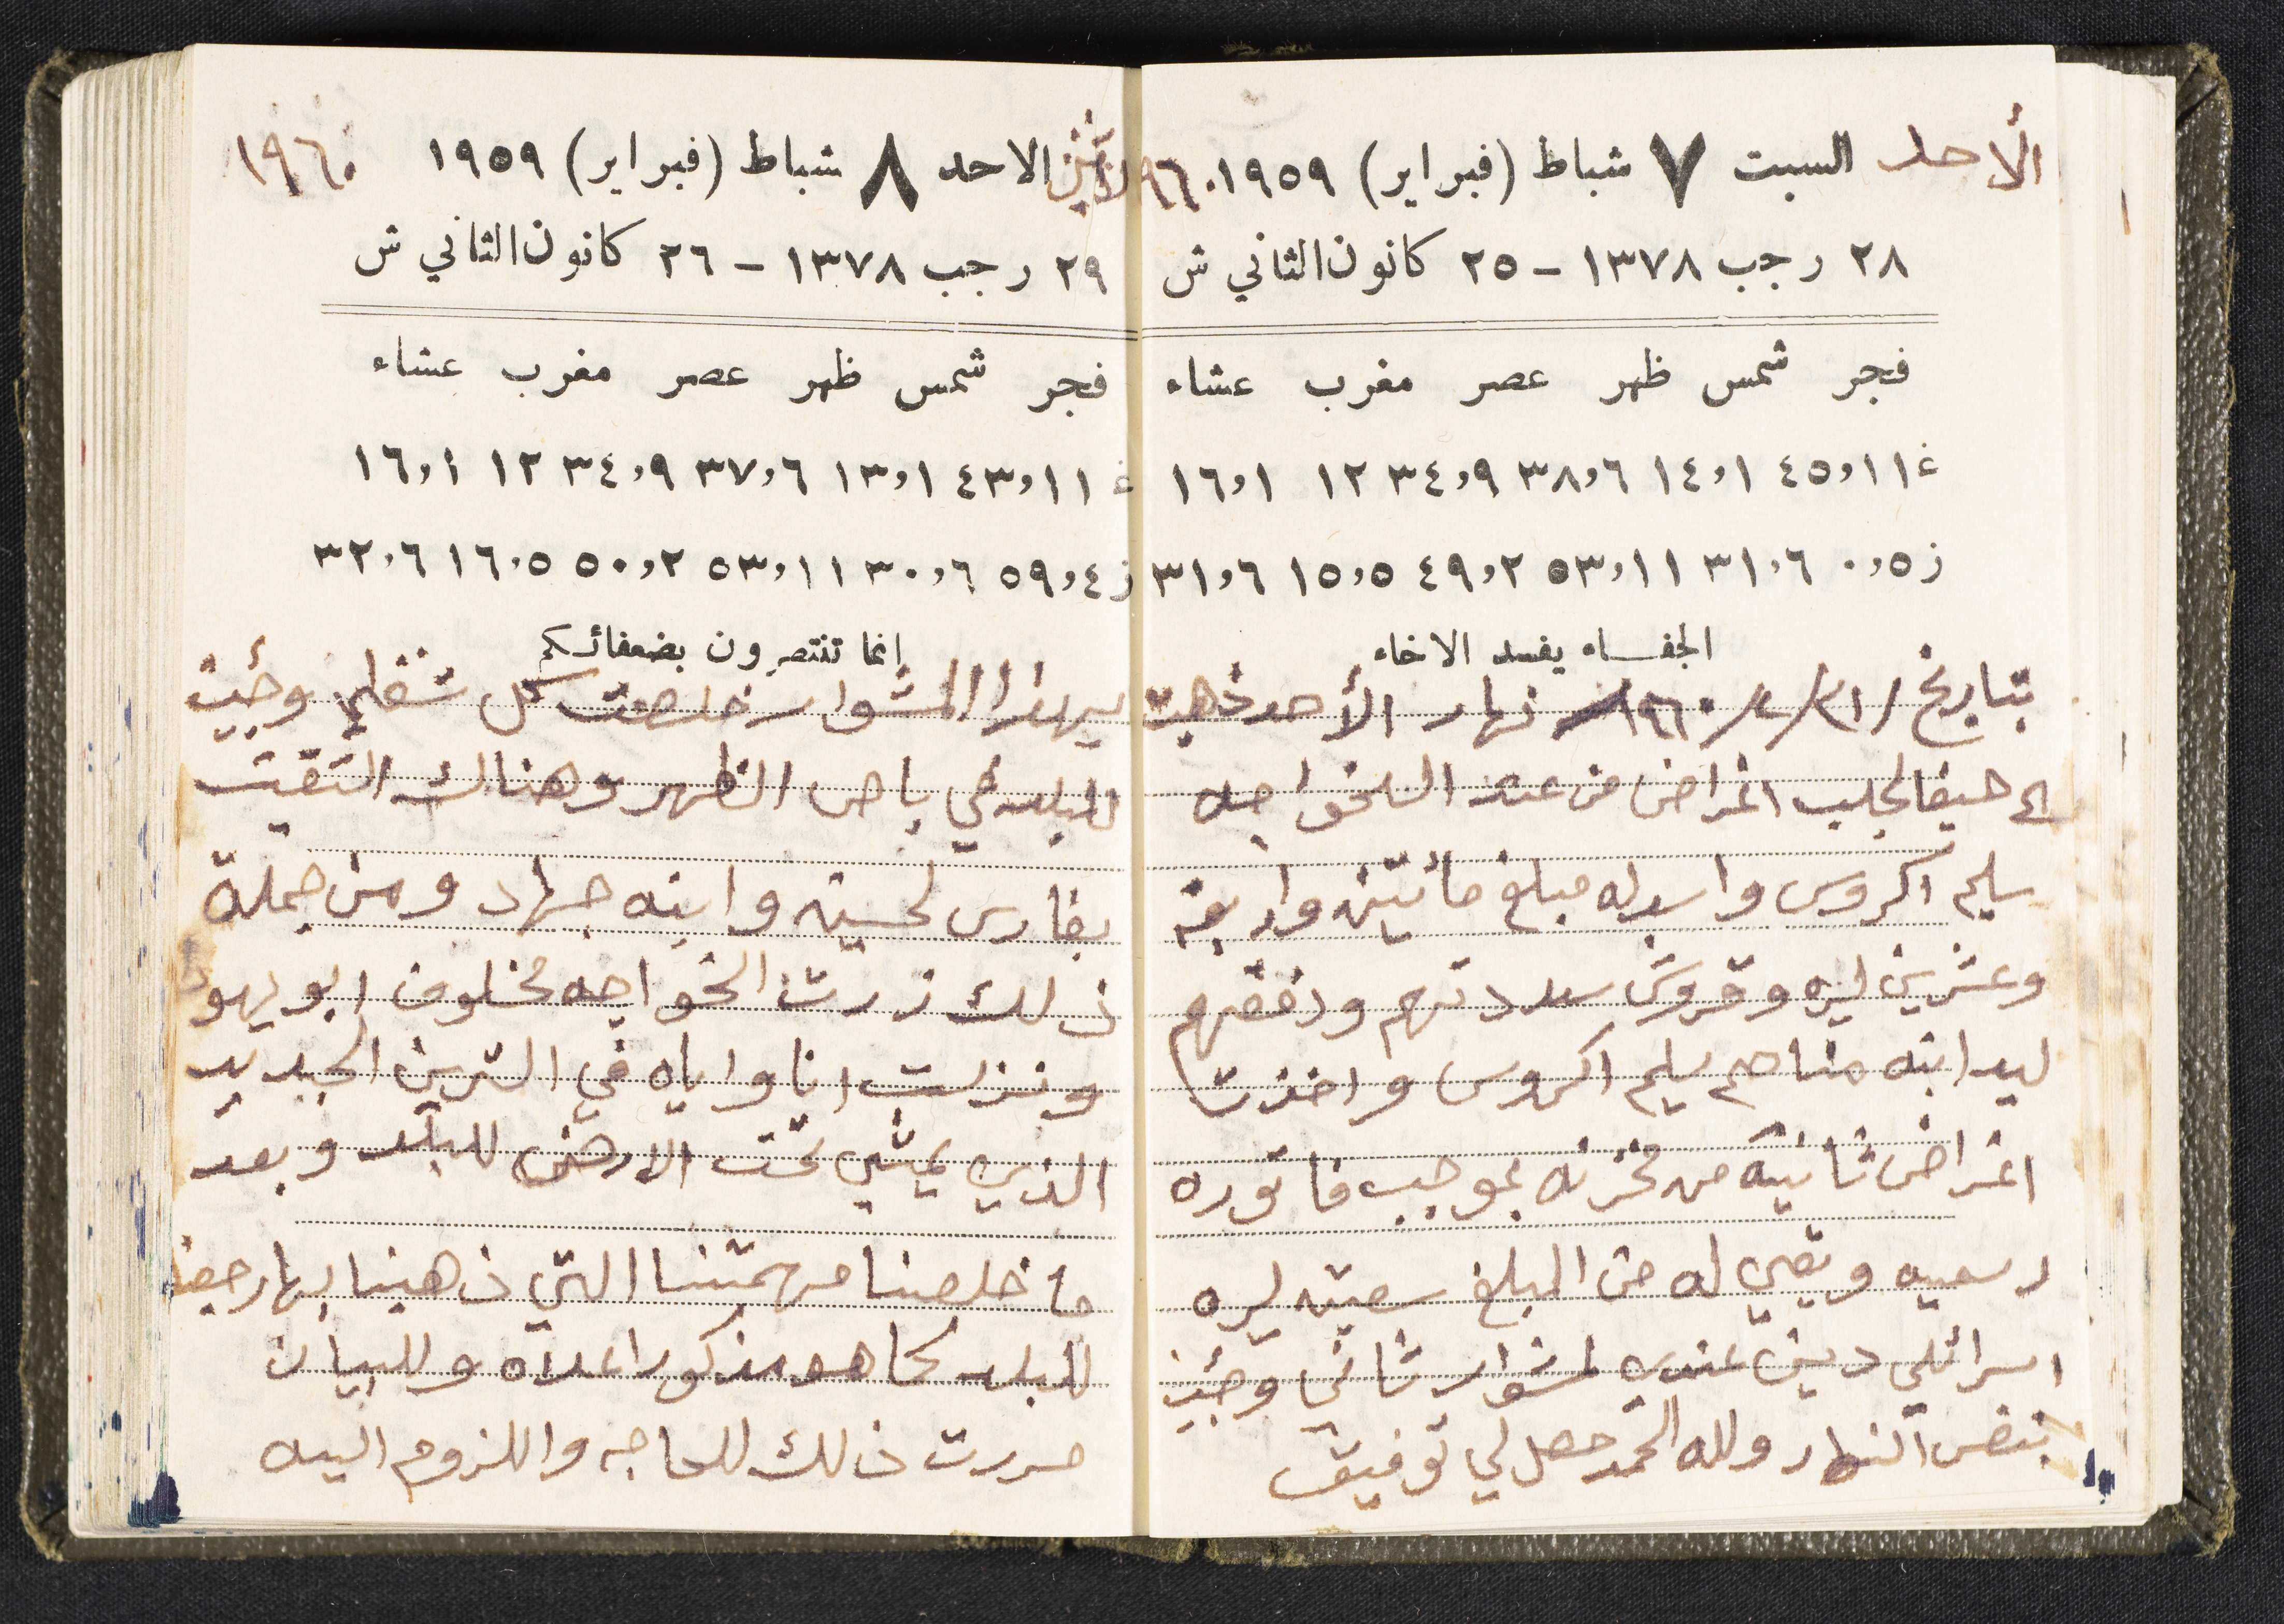 الأحد السبت ٧ شباط (فبراير) ١٩٥٩ ١٩٦٠
٢٨ رجب ١٣٧٨ – ٢٥ كانون الثاني ش
فجر شمس ظهر عصر مغرب عشاء
غ ١١،٤٥ ١،١٤ ٦،٣٨ ٩،٣٤ ١٢ ١،١٦
ز ٥،٠ ٦،٣١ ١١،٥٣ ٢،٤٩ ٥،١٥ ٦،٣١
الجفاء يفسد الاخاء
بتاريخ نهار الأحد ذهبت
الى حيفا لجلب اغراض من عند الخواجه
سليم اكروس واسدله مبلغ مائتين واربعة
وعشرين ليره وقروش سددتهم ودفعتهم
ليد ابنه مناحم سليم اكروس واخذت
اغراض ثانيه من مخزنه بموجب فاتوره
رسميه وبقي له من المبلغ سبعين ليره
اسرائلي دين عندي لمشوار ثاني وجئت
بنفس النهار ولله الحمد حصل لي توفيق
الاثنين الاحد ٨ شباط (فبراير) ١٩٥٩ ١٩٦٠
٢٩ رجب ١٣٧٨ – ٢٦ كانون الثاني ش
فجر شمس ظهر عصر مغرب عشاء
غ ١١،٤٣ ١،١٣ ٦،٣٧ ٩،٣٤ ١٢ ١،١٦
ز ٤،٥٩ ٦،٣٠ ١١،٥٣ ٢،٥٠ ٥،١٦ ٦،٣٢
إنما تنتصرون بضعفائكم
بهذا المشوار خلصت كل شغلي وجئيت
للبلد في باص الظهر وهناك التقيت
بفارس لحسين وابنه جهاد ومن جملة
ذلك زرت الخواجه مخلوف ابو يهود
ونزلت انا واياه في الترين الجديد
الذي يمشي تحت الارض للبلد وبعد
ما خلصنا مهمتنا التي ذهبنا بها رجعنا
للبلد كما هو مذكور اعلاه وللبيان
حررت ذلك للحاجه واللزوم اليه